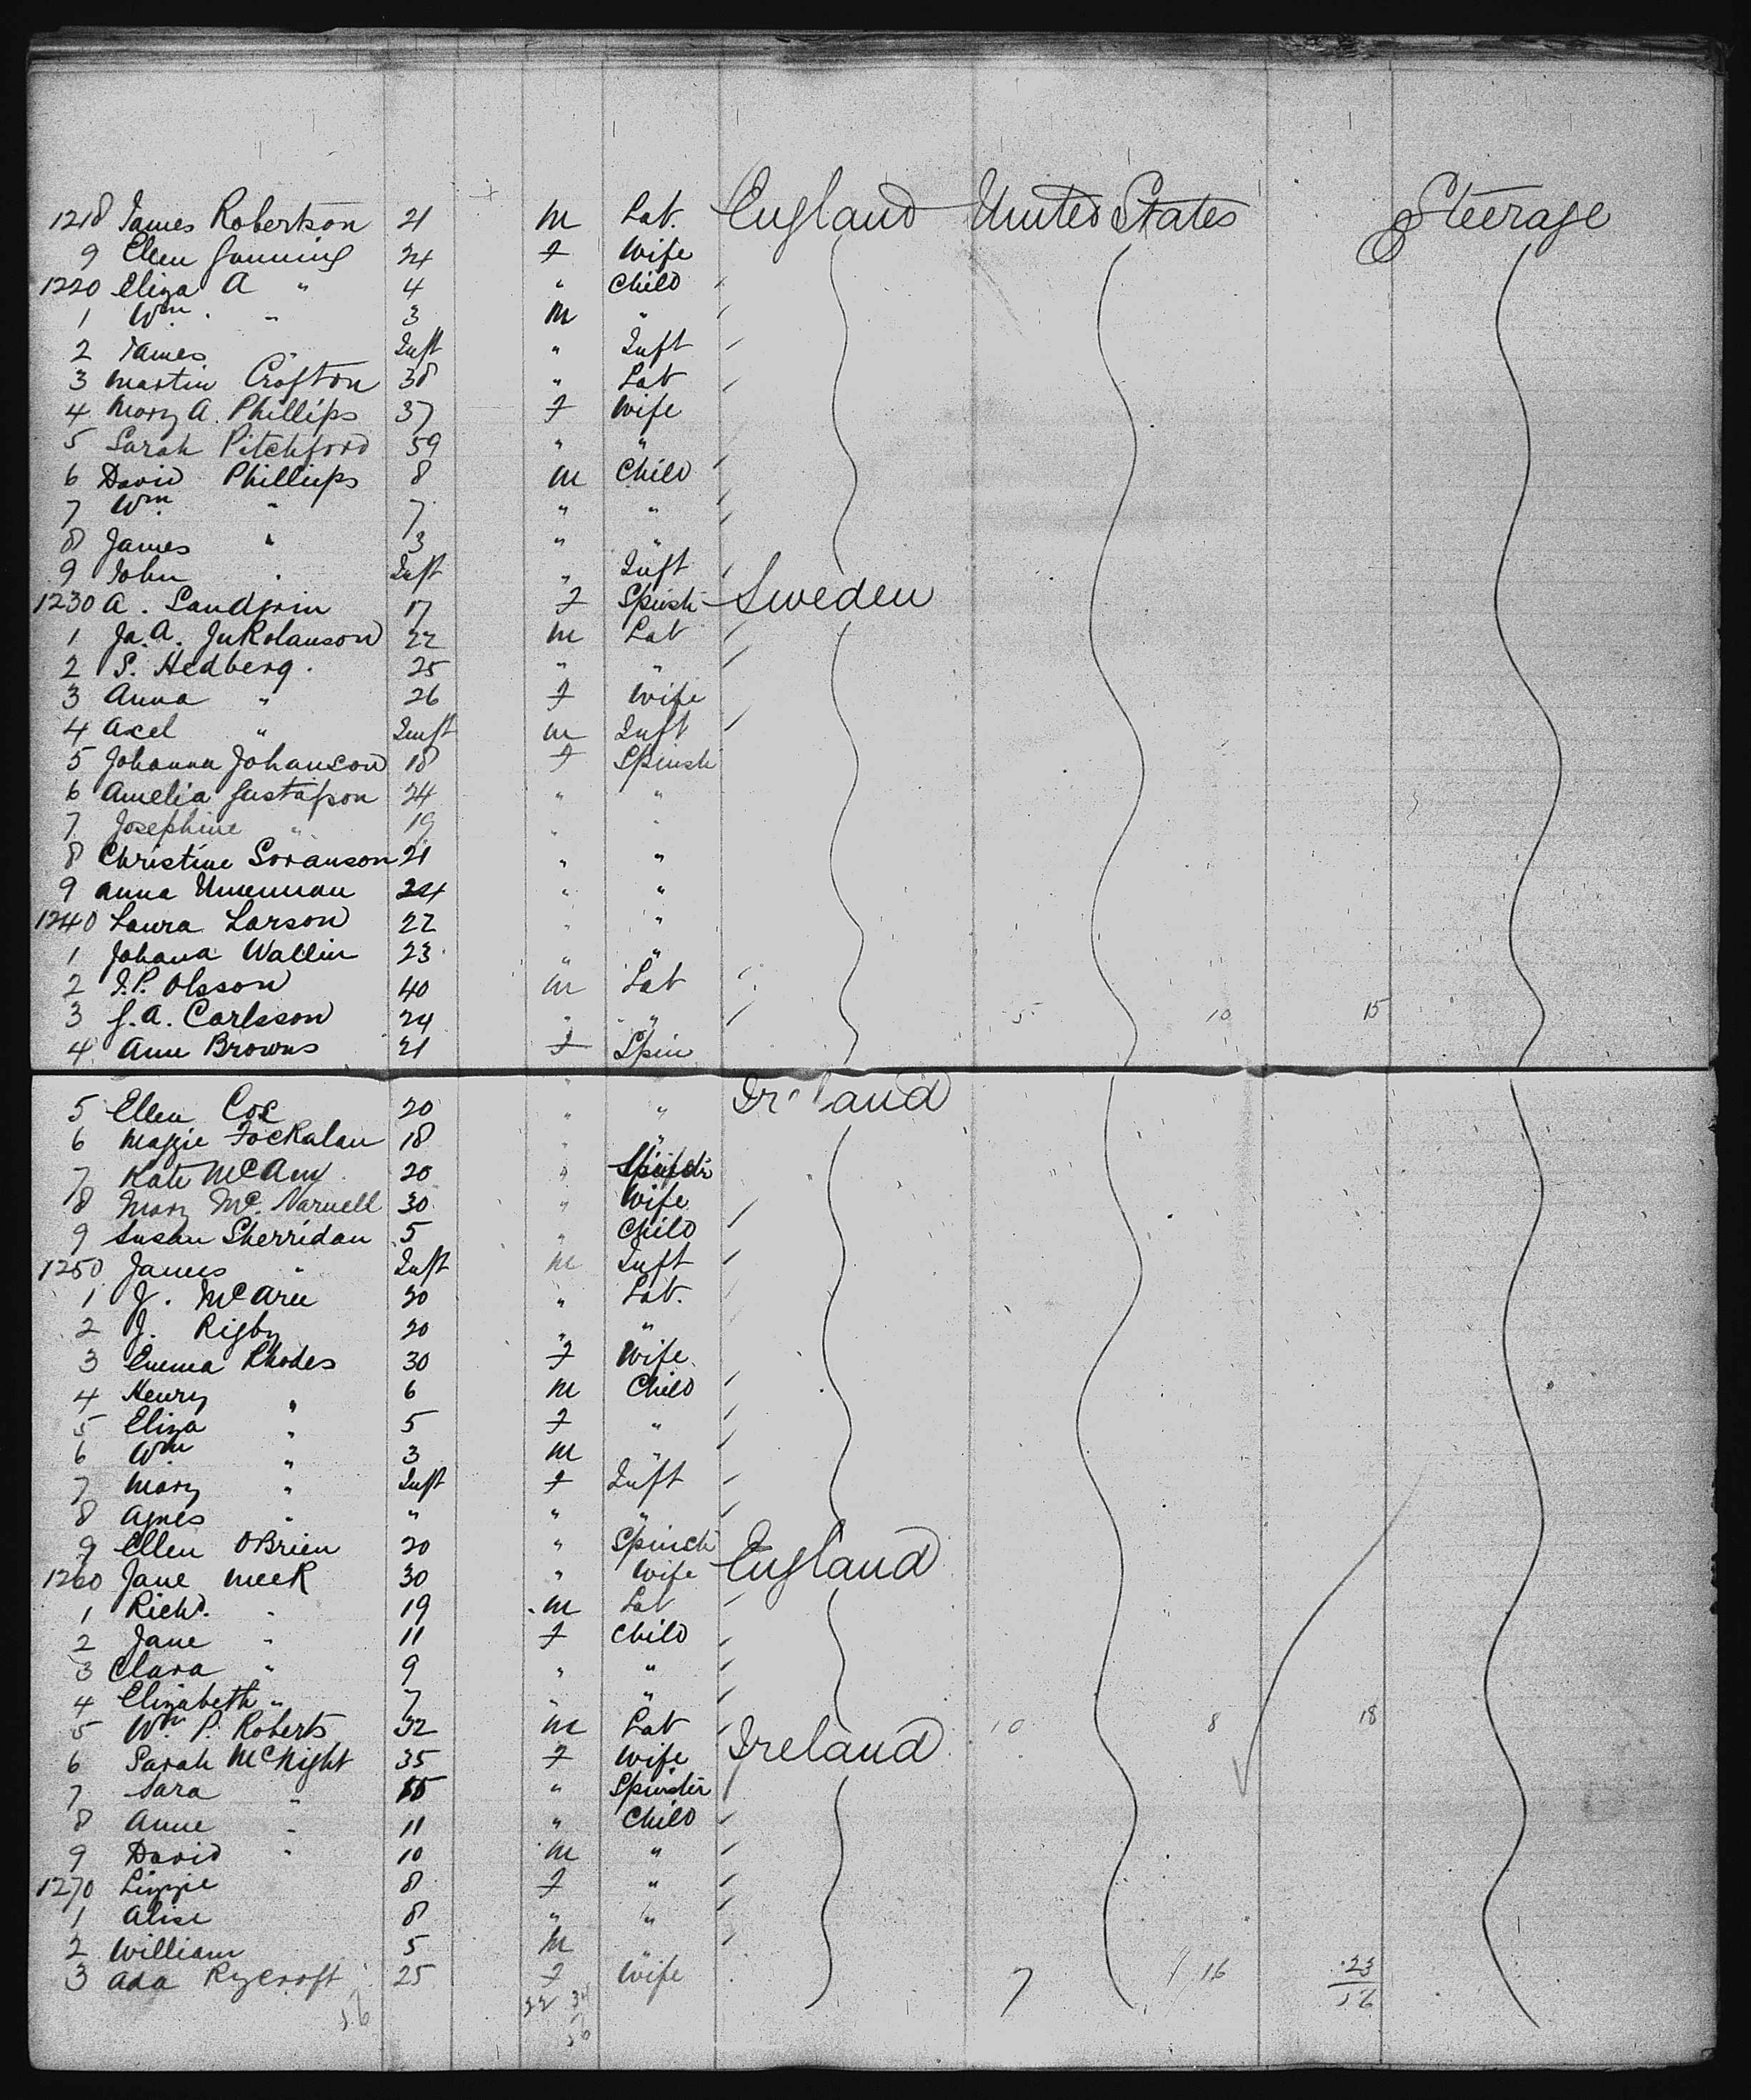 1218 James Robertson 21 m Lab. England United States Steerage
9 Ellen Gunning 24 f Wife
1220 Eliza A " 4 " Child
1 Wm. " 3 m "
2 James " Inft " Inft
3 Martin Crofton 38 " Lab
4 Mary A. Phillips 37 f Wife
5 Sarah Pitchford 59 " "
6 David Phillips 8 m Child
7 Wm " 7 " "
8 James " 3 " "
9 John " Inft " Inft
1230 A. 17 f Spinstr Sweden
1 Ja. A. 22 m Lab
2 S. Hedberg. 25 " "
3 Anna " 26 f Wife
4 Axel " Inft m Inft
5 Johanna Johanson 18 f Spinstr
6 Amelia Gustafson 24 " "
7 Josephine " 19 " "
8 Christine Soranson 21 " "
9 Anna 24 " "
1240 Laura Larson 22 " "
1 Johana Wallin 23 " "
2 J.P. Olsson 40 m Lab
3 G.A. Carlsson 24 " " 5 10 15
4 Ann Browns 21 f Spin
5 Ellen Cox 20 " " Ireland
6 Maggie 18 " "
7 Kate McAny 20 "
8 Mary Mc. Narnell 30 " Wife
9 Susan Sherridan 5 " Child
1250 James " Inft m Inft
1 J. 20 " Lab.
2 J. Rigby 20 " "
3 Emma Rhodes 30 f Wife
4 Henry " 6 m Child
5 Eliza " 5 f "
6 Wm " 3 m "
7 Mary " Inft f Inft
8 Agnes " " " "
9 Ellen OBrien 20 " Spinstr
1260 Jane Meek 30 " Wife England
1 Richd. " 19 m Lab
2 Jane " 11 f Child
3 Clara " 9 " "
4 Elizabeth " 7 " "
5 Wm P. Roberts 32 m Lab 10 8 18
6 Sarah McNight 35 f Wife Ireland
7 Sara " " Spinstr
8 Anne " 11 " Child
9 David " 10 m "
1270 Lizzie 8 f "
1 Alise 8 " "
2 William 5 m "
3 Ada Rycroft 25 f Wife 7 16 23
56 22 34 56
56